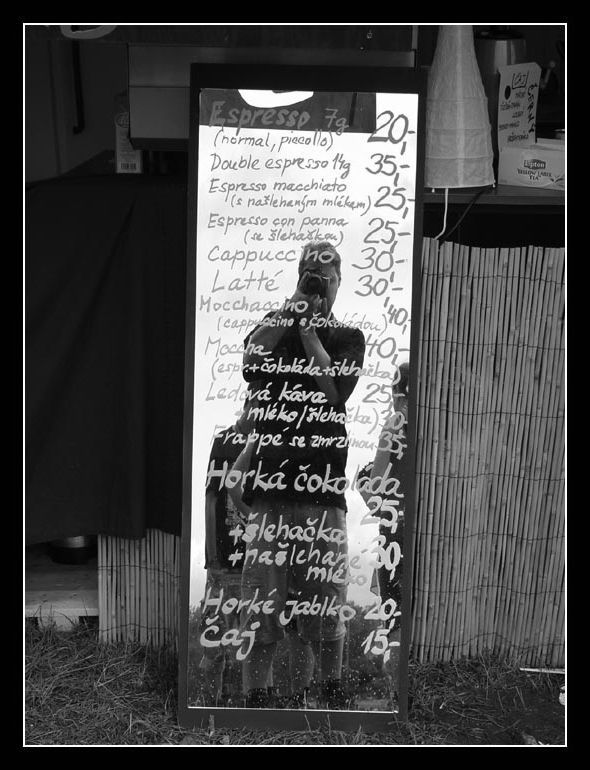 Espresso 7g 20,-
(normal, piccollo)
Double espresso 14g 35,-
Espresso macchiato
(s našlehaným mlékam) 25,-
Espresso con panna
(se šlehačkou) 25,-
Cappuccino 30,-
Latté 30,-
Mocchaccino
(cappuccino s čokoládou) 40,-
Moccha 40,-
(espr.+čokoláda+šlehačka)
Ledová káva 25,-
+mléko/šlehačka) 30,-
Frappé se zmrzlinou 35,-
Horká čokoláda
25,-
+šlehačka
+našlehané 30
mléko
Horké jablko 20,-
Čaj 15,-
Lipton
YELLOW LABEL
TEA